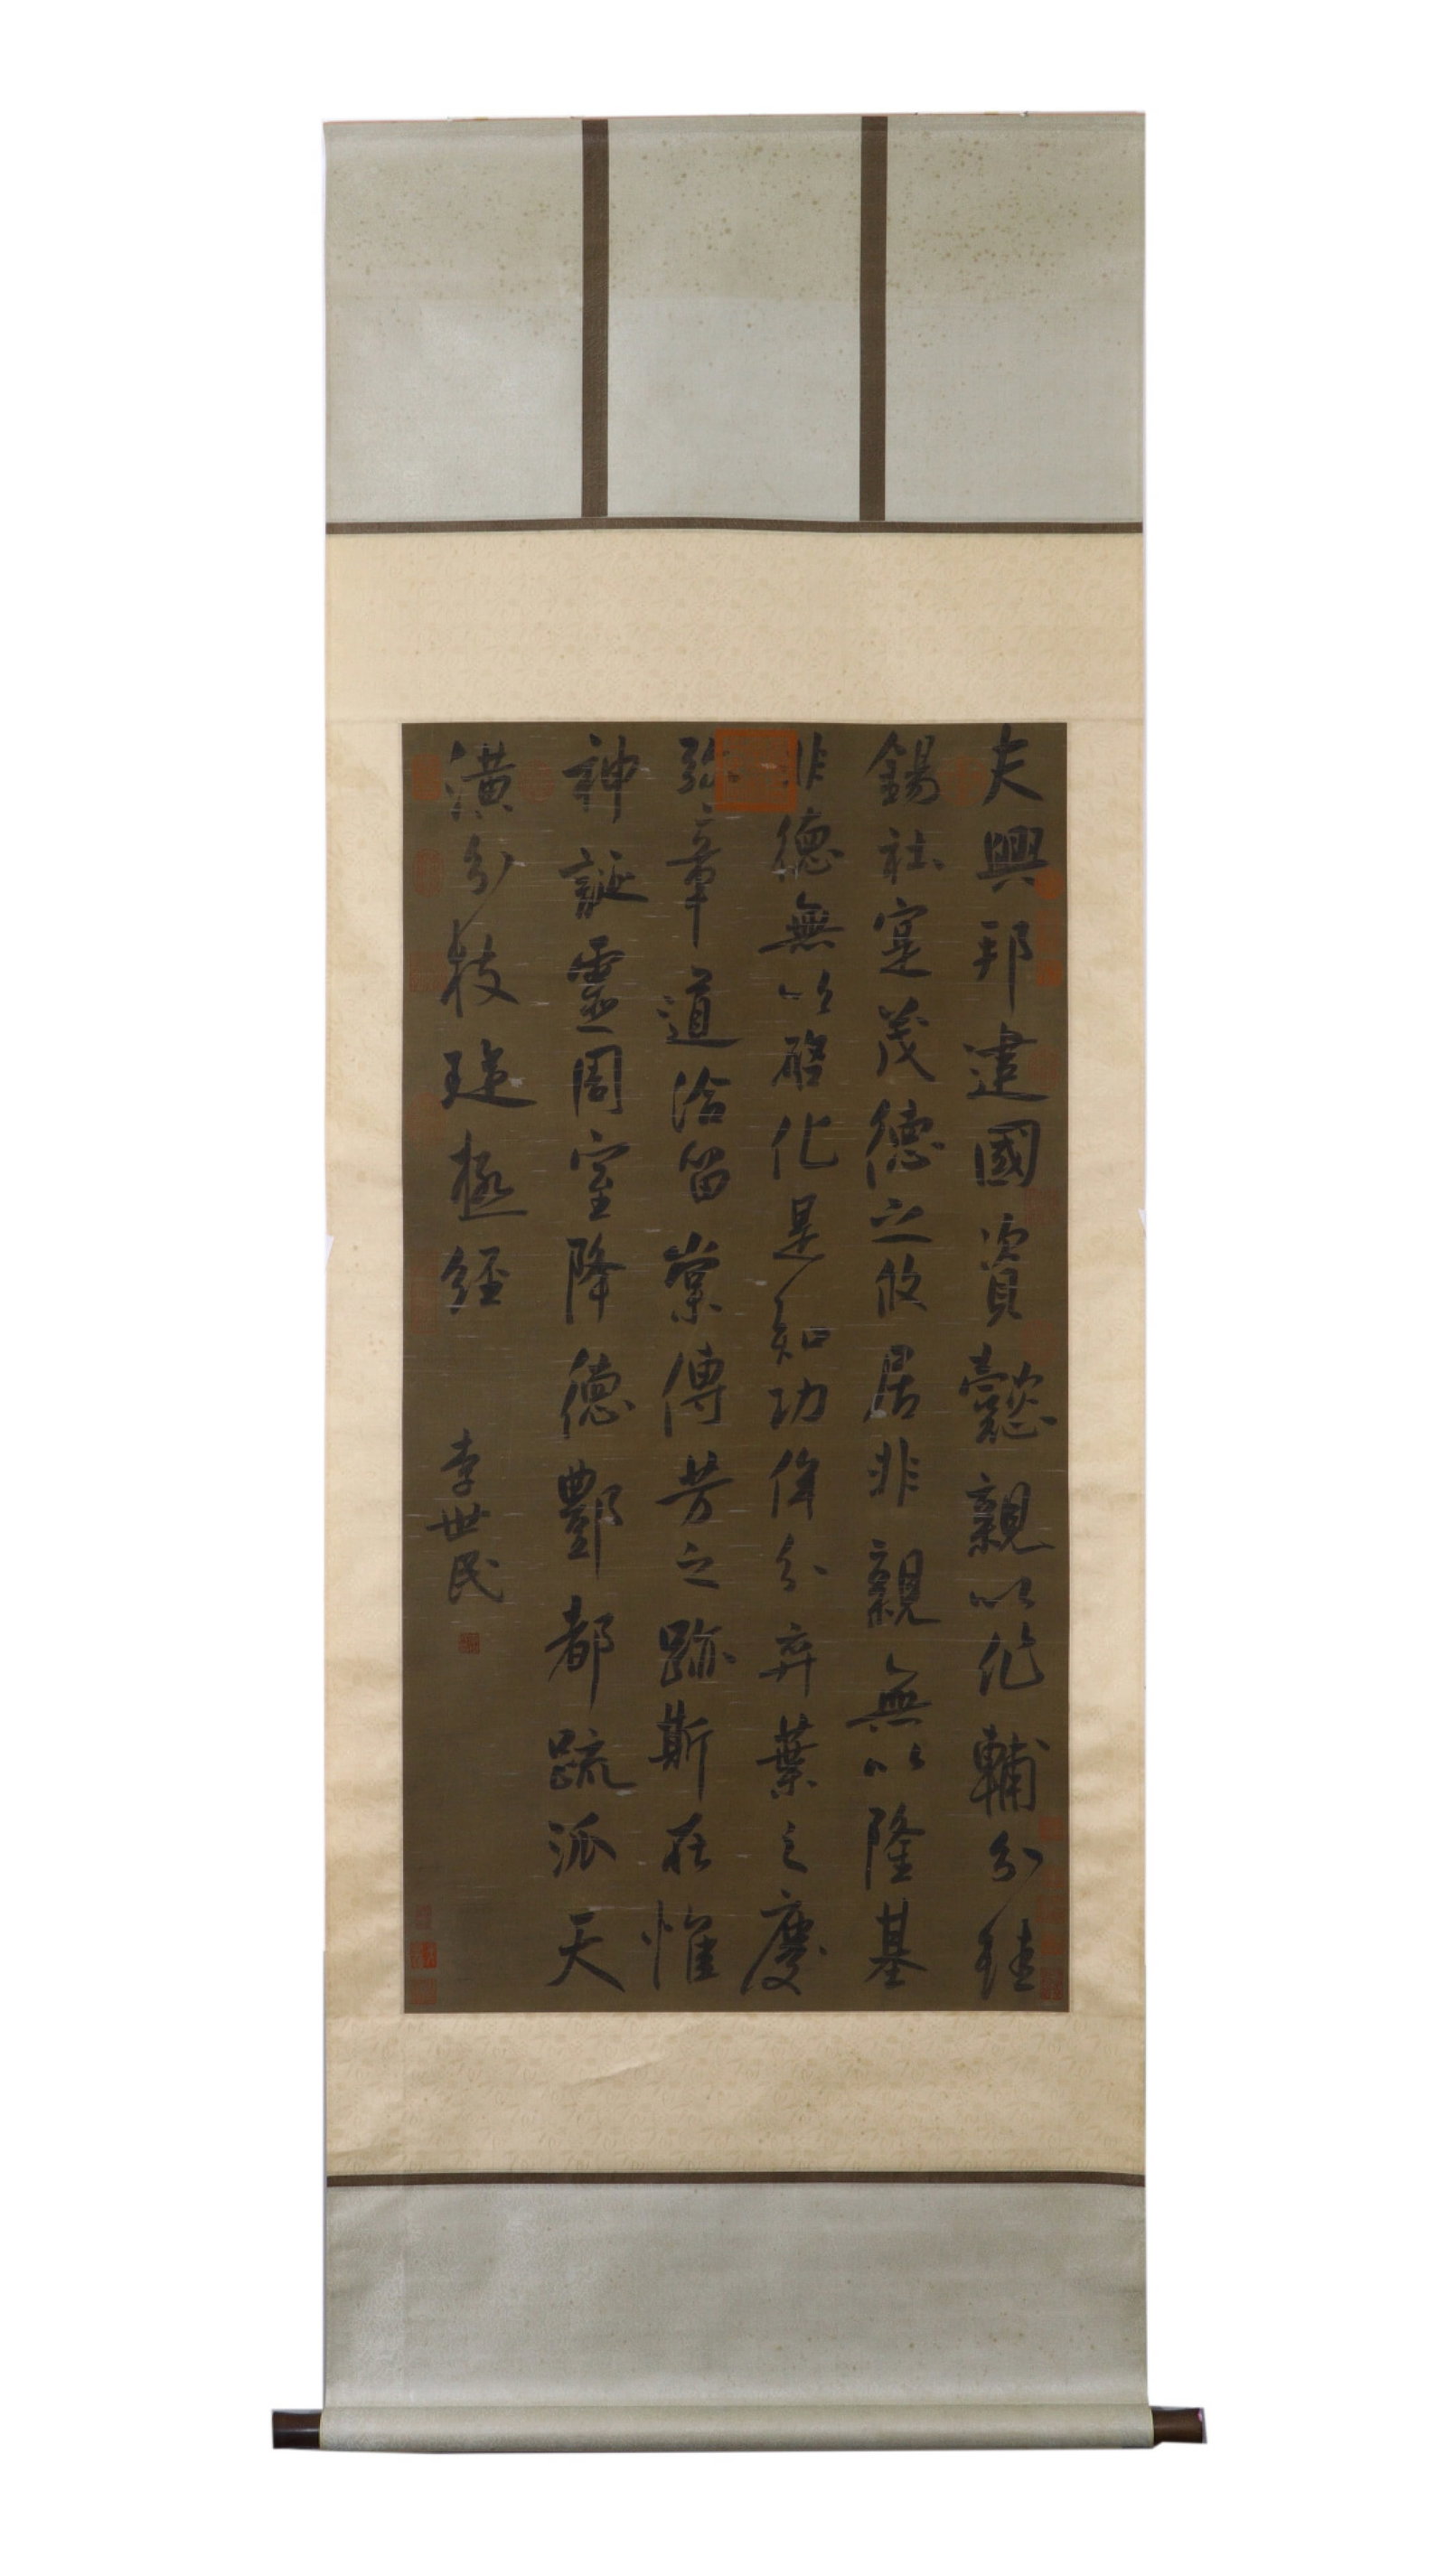 夫興邦建國資懿親以作輔分珪
錫社寔茂德之攸居非親無以隆基
非德無以啓化是知功侔分弃葉之慶
弥章道洽留棠傳芳之跡斯在惟
神誕靈周室降德酆都疏派天
潢分枝璇極經
李世民